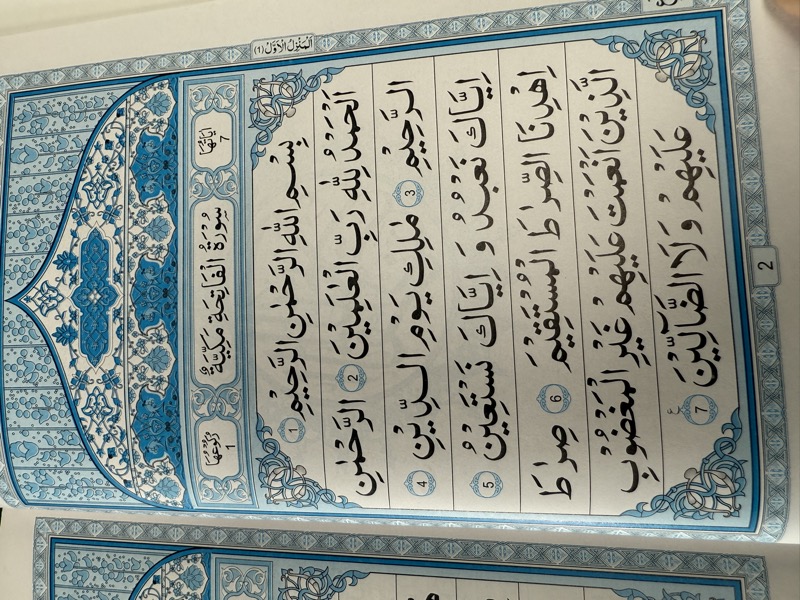 اَلْمَنْزِلُ الْاَوَّلُ ﴿١﴾
اٰيَاتُهَا 7
سُوْرَةُ الْفَاتِحَةِ مَكِّيَّةٌ
رُكُوْعُهَا 1
بِسْمِ اللّٰهِ الرَّحْمٰنِ الرَّحِيْمِ 1
اَلْحَمْدُ لِلّٰهِ رَبِّ الْعٰلَمِيْنَ 2 الرَّحْمٰنِ
الرَّحِيْمِ 3 مٰلِكِ يَوْمِ الدِّيْنِ 4
اِيَّاكَ نَعْبُدُ وَ اِيَّاكَ نَسْتَعِيْنُ 5
اِهْدِنَا الصِّرَاطَ الْمُسْتَقِيْمَ 6 صِرَاطَ
الَّذِيْنَ اَنْعَمْتَ عَلَيْهِمْ غَيْرِ الْمَغْضُوْبِ
عَلَيْهِمْ وَ لَا الضَّآلِّيْنَ 7
2